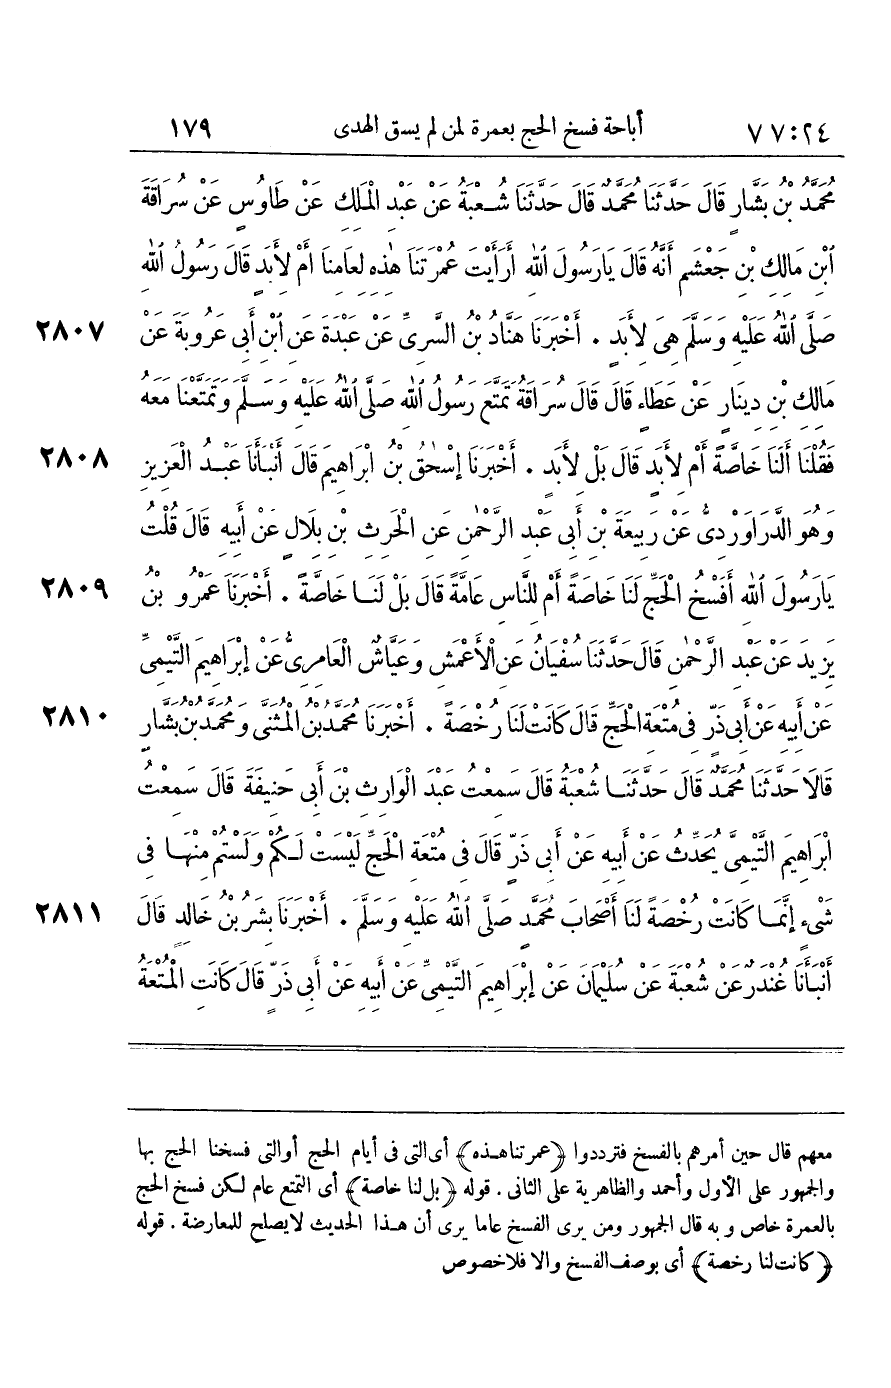 ٧٧:٢٤ أباحة فسخ الحج بعمرة لمن لم يسق الهدى ١٧٩
مُحَمَّدُ بْنُ بَشَّارٍ قَالَ حَدَّثَنَا مُحَمَّدٌ قَالَ حَدَّثَنَا شُعْبَةُ عَنْ عَبْدِ الْمَلِكِ عَنْ طَاوُسٍ عَنْ سُرَاقَةَ
ابْنِ مَالِكِ بْنِ جَعْشَمٍ أَنَّهُ قَالَ يَارَسُولَ اللهِ أَرَأَيْتَ عُمْرَتَنَا هٰذِهِ لِعَامِنَا أَمْ لِأَبَدٍ قَالَ رَسُولُ اللهِ
صَلَّى اللهُ عَلَيْهِ وَسَلَّمَ هِىَ لِأَبَدٍ . أَخْبَرَنَا هَنَّادُ بْنُ السَّرِىِّ عَنْ عَبْدَةَ عَنِ ابْنِ أَبِى عَرُوبَةَ عَنْ ٢٨٠٧
مَالِكِ بْنِ دِينَارٍ عَنْ عَطَاءٍ قَالَ قَالَ سُرَاقَةُ تَمَتَّعَ رَسُولُ اللهِ صَلَّى اللهُ عَلَيْهِ وَسَلَّمَ وَتَمَتَّعْنَا مَعَهُ
فَقُلْنَا أَلَنَا خَاصَّةً أَمْ لِأَبَدٍ قَالَ بَلْ لِأَبَدٍ . أَخْبَرَنَا إِسْحٰقُ بْنُ ابْرَاهِيمَ قَالَ أَنْبَأَنَا عَبْدُ الْعَزِيزِ ٢٨٠٨
وَهُوَ الدَّرَاوَرْدِىُّ عَنْ رَبِيعَةَ بْنِ أَبِى عَبْدِ الرَّحْمٰنِ عَنِ الْحَرِثِ بْنِ بِلَالٍ عَنْ أَبِيهِ قَالَ قُلْتُ
يَارَسُولَ اللهِ أَفَسْخُ الْحَجِّ لَنَا خَاصَةً أَمْ لِلنَّاسِ عَامَّةً قَالَ بَلْ لَنَا خَاصَّةً . أَخْبَرَنَا عَمْرُو بْنُ ٢٨٠٩
يَزِيدَ عَنْ عَبْدِ الرَّحْمٰنِ قَالَ حَدَّثَنَا سُفْيَانُ عَنِ الْأَعْمَشِ وَعَيَّاشٌ الْعَامِرِىُّ عَنْ إِبْرَاهِيمَ التَّيْمِىِّ
عَنْ أَبِيهِ عَنْ أَبِى ذَرٍّ فِى مُتْعَةِ الْحَجِّ قَالَ كَانَتْ لَنَا رُخْصَةً . أَخْبَرَنَا مُحَمَّدُ بْنُ الْمُثَنَّى وَمُحَمَّدُ بْنُ بَشَّارٍ ٢٨١٠
قَالَا حَدَّثَنَا مُحَمَّدٌ قَالَ حَدَّثَنَا شُعْبَةُ قَالَ سَمِعْتُ عَبْدَ الْوَارِثِ بْنَ أَبِى حَنِيفَةَ قَالَ سَمِعْتُ
ابْرَاهِيمَ التَّيْمِىَّ يُحَدِّثُ عَنْ أَبِيهِ عَنْ أَبِى ذَرٍّ قَالَ فِى مُتْعَةِ الْحَجِّ لَيْسَتْ لَكُمْ وَلَسْتُمْ مِنْهَا فِى
شَىْءٍ إِنَّمَا كَانَتْ رُخْصَةً لَنَا أَصْحَابَ مُحَمَّدٍ صَلَّى اللهُ عَلَيْهِ وَسَلَّمَ . أَخْبَرَنَا بِشْرُ بْنُ خَالِدٍ قَالَ ٢٨١١
أَنْبَأَنَا غُنْدَرٌ عَنْ شُعْبَةَ عَنْ سُلَيْمَانَ عَنْ إِبْرَاهِيمَ التَّيْمِىِّ عَنْ أَبِيهِ عَنْ أَبِى ذَرٍّ قَالَ كَانَتِ الْمُتْعَةُ
معهم قال حين أمرهم بالفسخ فترددوا ﴿عمرتنا هذه﴾ أى التى فى أيام الحج أو التى فسخنا الحج بها
والجمهور على الأول وأحمد والظاهرية على الثانى . قوله ﴿بل لنا خاصة﴾ أى التمتع عام لكن فسخ الحج
بالعمرة خاص وبه قال الجمهور ومن يرى الفسخ عاما يرى أن هذا الحديث لا يصلح للمعارضة . قوله
﴿كانت لنا رخصة﴾ أى بوصف الفسخ والا فلا خصوص